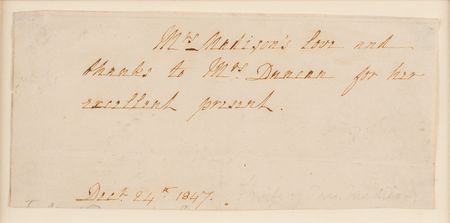 Mrs Madison's love and
thanks to Mrs. Duncan for her
excellent present.
Decr. 24th 1847.